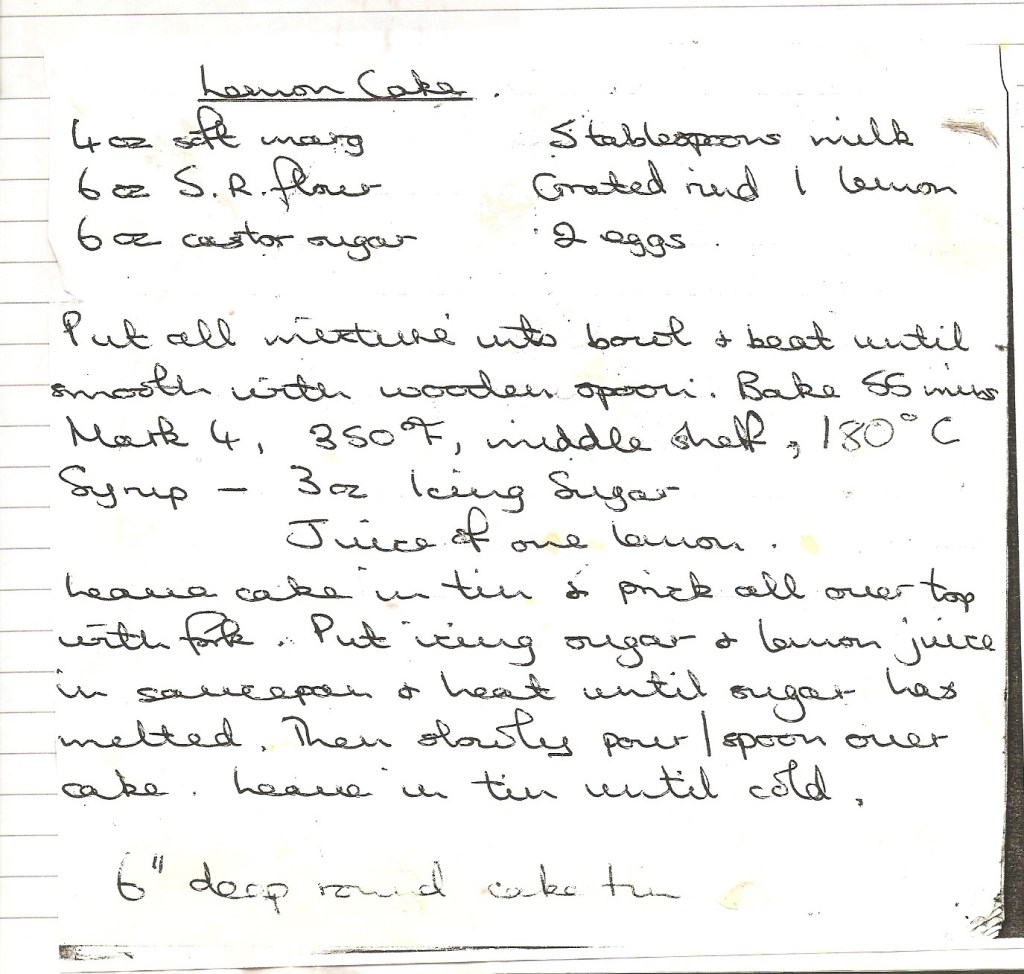 Lemon Cake.
4 oz soft marg 5 tablespoons milk
6 oz S.R. flour Grated rind 1 lemon
6 oz castor sugar 2 eggs.
Put all mixture into bowl & beat until
smooth with wooden spoon. Bake 55 mins
Mark 4, 350°F, middle shelf, 180°C
Syrup – 3oz Icing Sugar
Juice of one lemon.
Leave cake in tin & prick all over top
with fork. Put icing sugar & lemon juice
in saucepan & heat until sugar has
melted. Then slowly pour/spoon over
cake. Leave in tin until cold.
6" deep round cake tin